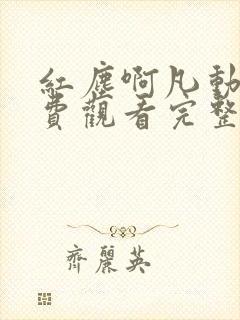 紅塵啊凡動
費觀看完整
齊麗英